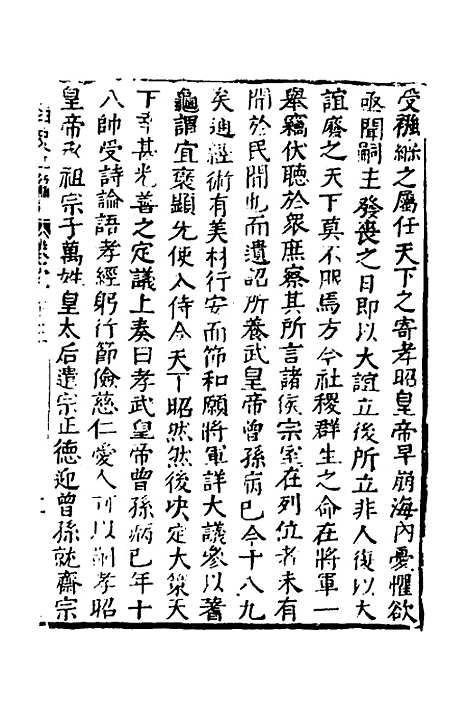 受襁緥之屬任天下之寄孝昭皇帝早崩海內憂懼欲
亟聞嗣主發喪之日即以大誼立後所立非人復以大
誼廢之天下莫不服焉方今社稷群生之命在將軍一
舉竊伏聽於眾庶察其所言諸侯宗室在列位者未有
聞於民間也而遺詔所養武皇帝曾孫病已今十八九
矣通經術有美材行安而節和願將軍詳大議參以蓍
龜謂宜褒顯先使入侍令天下昭然然後决定大策天
下幸甚光善之定議上奏曰孝武皇帝曾孫病已年十
八師受詩論語孝經躬行節儉慈仁愛人可以嗣孝昭
皇帝承祖宗子萬姓皇太后遣宗正德迎曾孫就齋宗